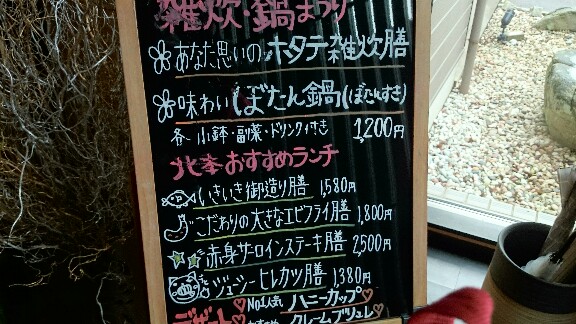 雑炊・鍋まつり
あなた思いのホタテ雑炊膳
味わいぼたん鍋(ぼたんすき)
各 小鉢・副菜・ドリンク付き 1,200円
おすすめランチ
いきいき御造り膳 1,580円
こだわりの大きなエビフライ膳 1,800円
赤身サーロインステーキ膳 2,500円
ジューシーヒレカツ膳 1,380円
デザート
No.1人気 ハニーカップ
おすすめ クレームブリュレ